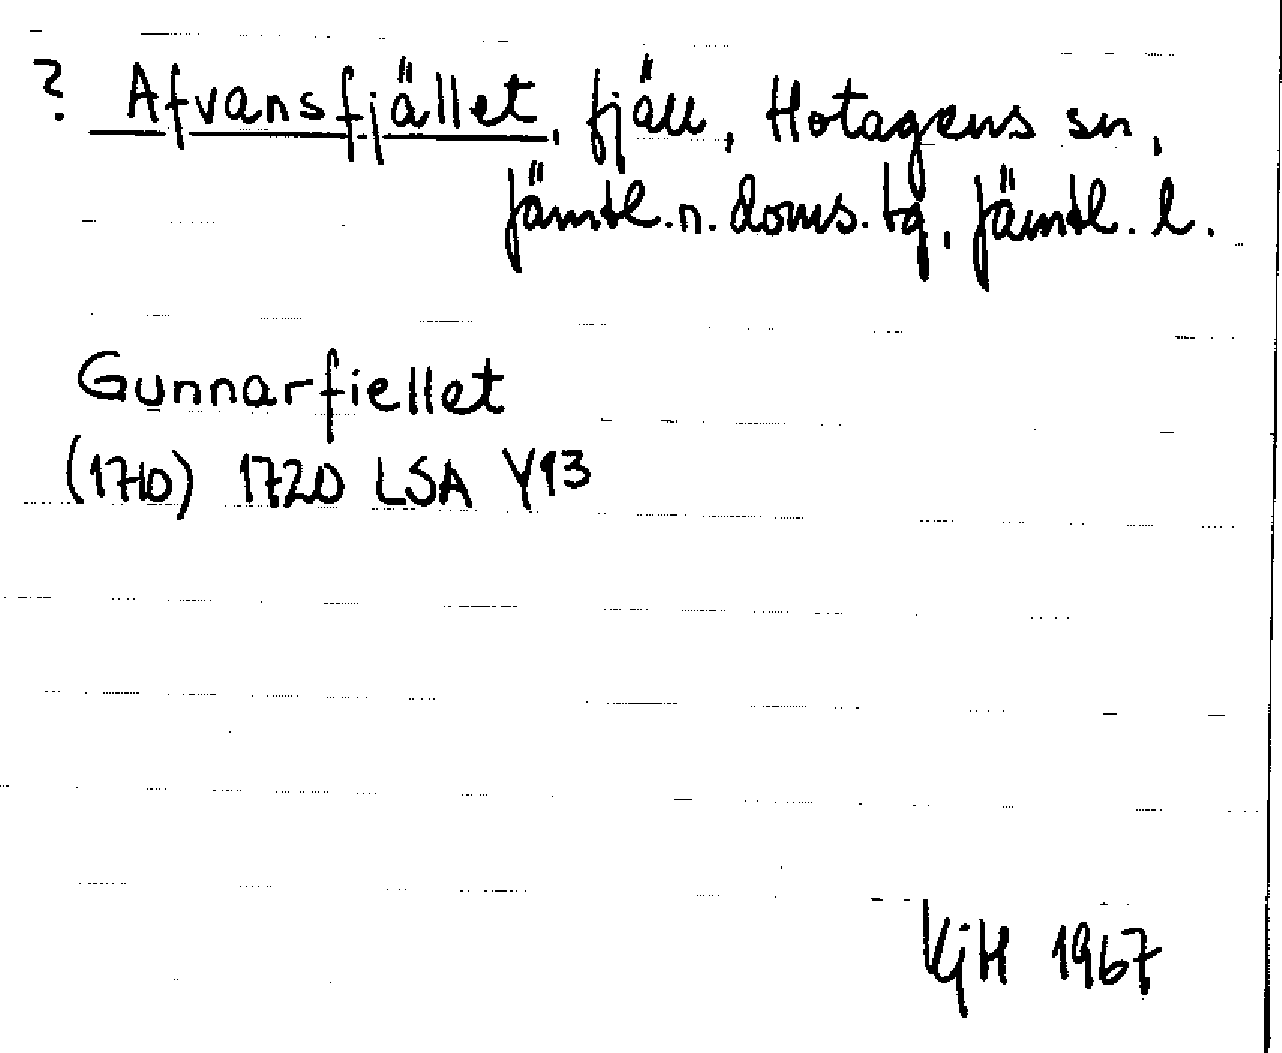 ? Afvansfjället, fjäll, Hotagens sn,
Jämtl. n. doms. tg, Jämtl. l.
Gunnarfiellet
(1710) 1720 LSA Y13
KjH 1967